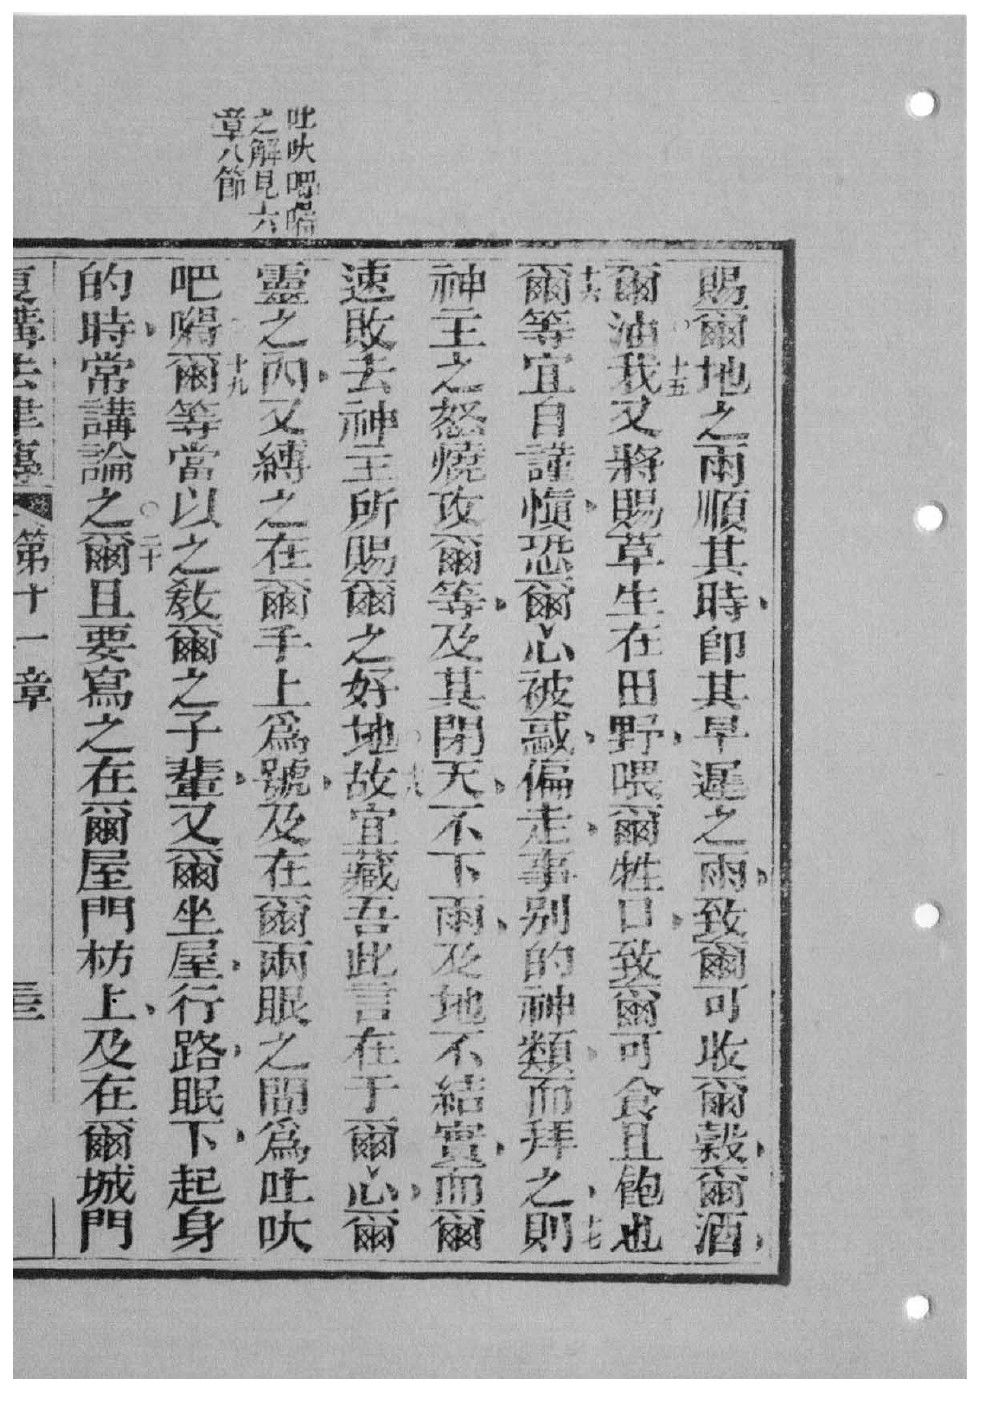 吐吠吧嗎
之解見六
章八節
賜爾地之雨順其時、卽其早遲之雨、致爾可收爾穀、爾酒、
爾油○十五我又將賜草生在田野、喂爾牲口、致爾可食且飽也
十六爾等宜自謹愼、恐爾心被惑、偏走、事別的神類、而拜之、十七則
神主之怒燒攻爾等、及其閉天、不下雨、及地不結實、而爾
速敗去神主所賜爾之好地○十八故宜藏吾此言在于爾心、爾
靈之內、又縛之在爾手上爲號、及在爾兩眼之間爲吐吠
吧嗎○十九爾等當以之敎爾之子輩、又爾坐屋、行路、眠下、起身
的時、常講論之○二十爾且要寫之在爾屋門枋上、及在爾城門
復講法律篇 第十一章